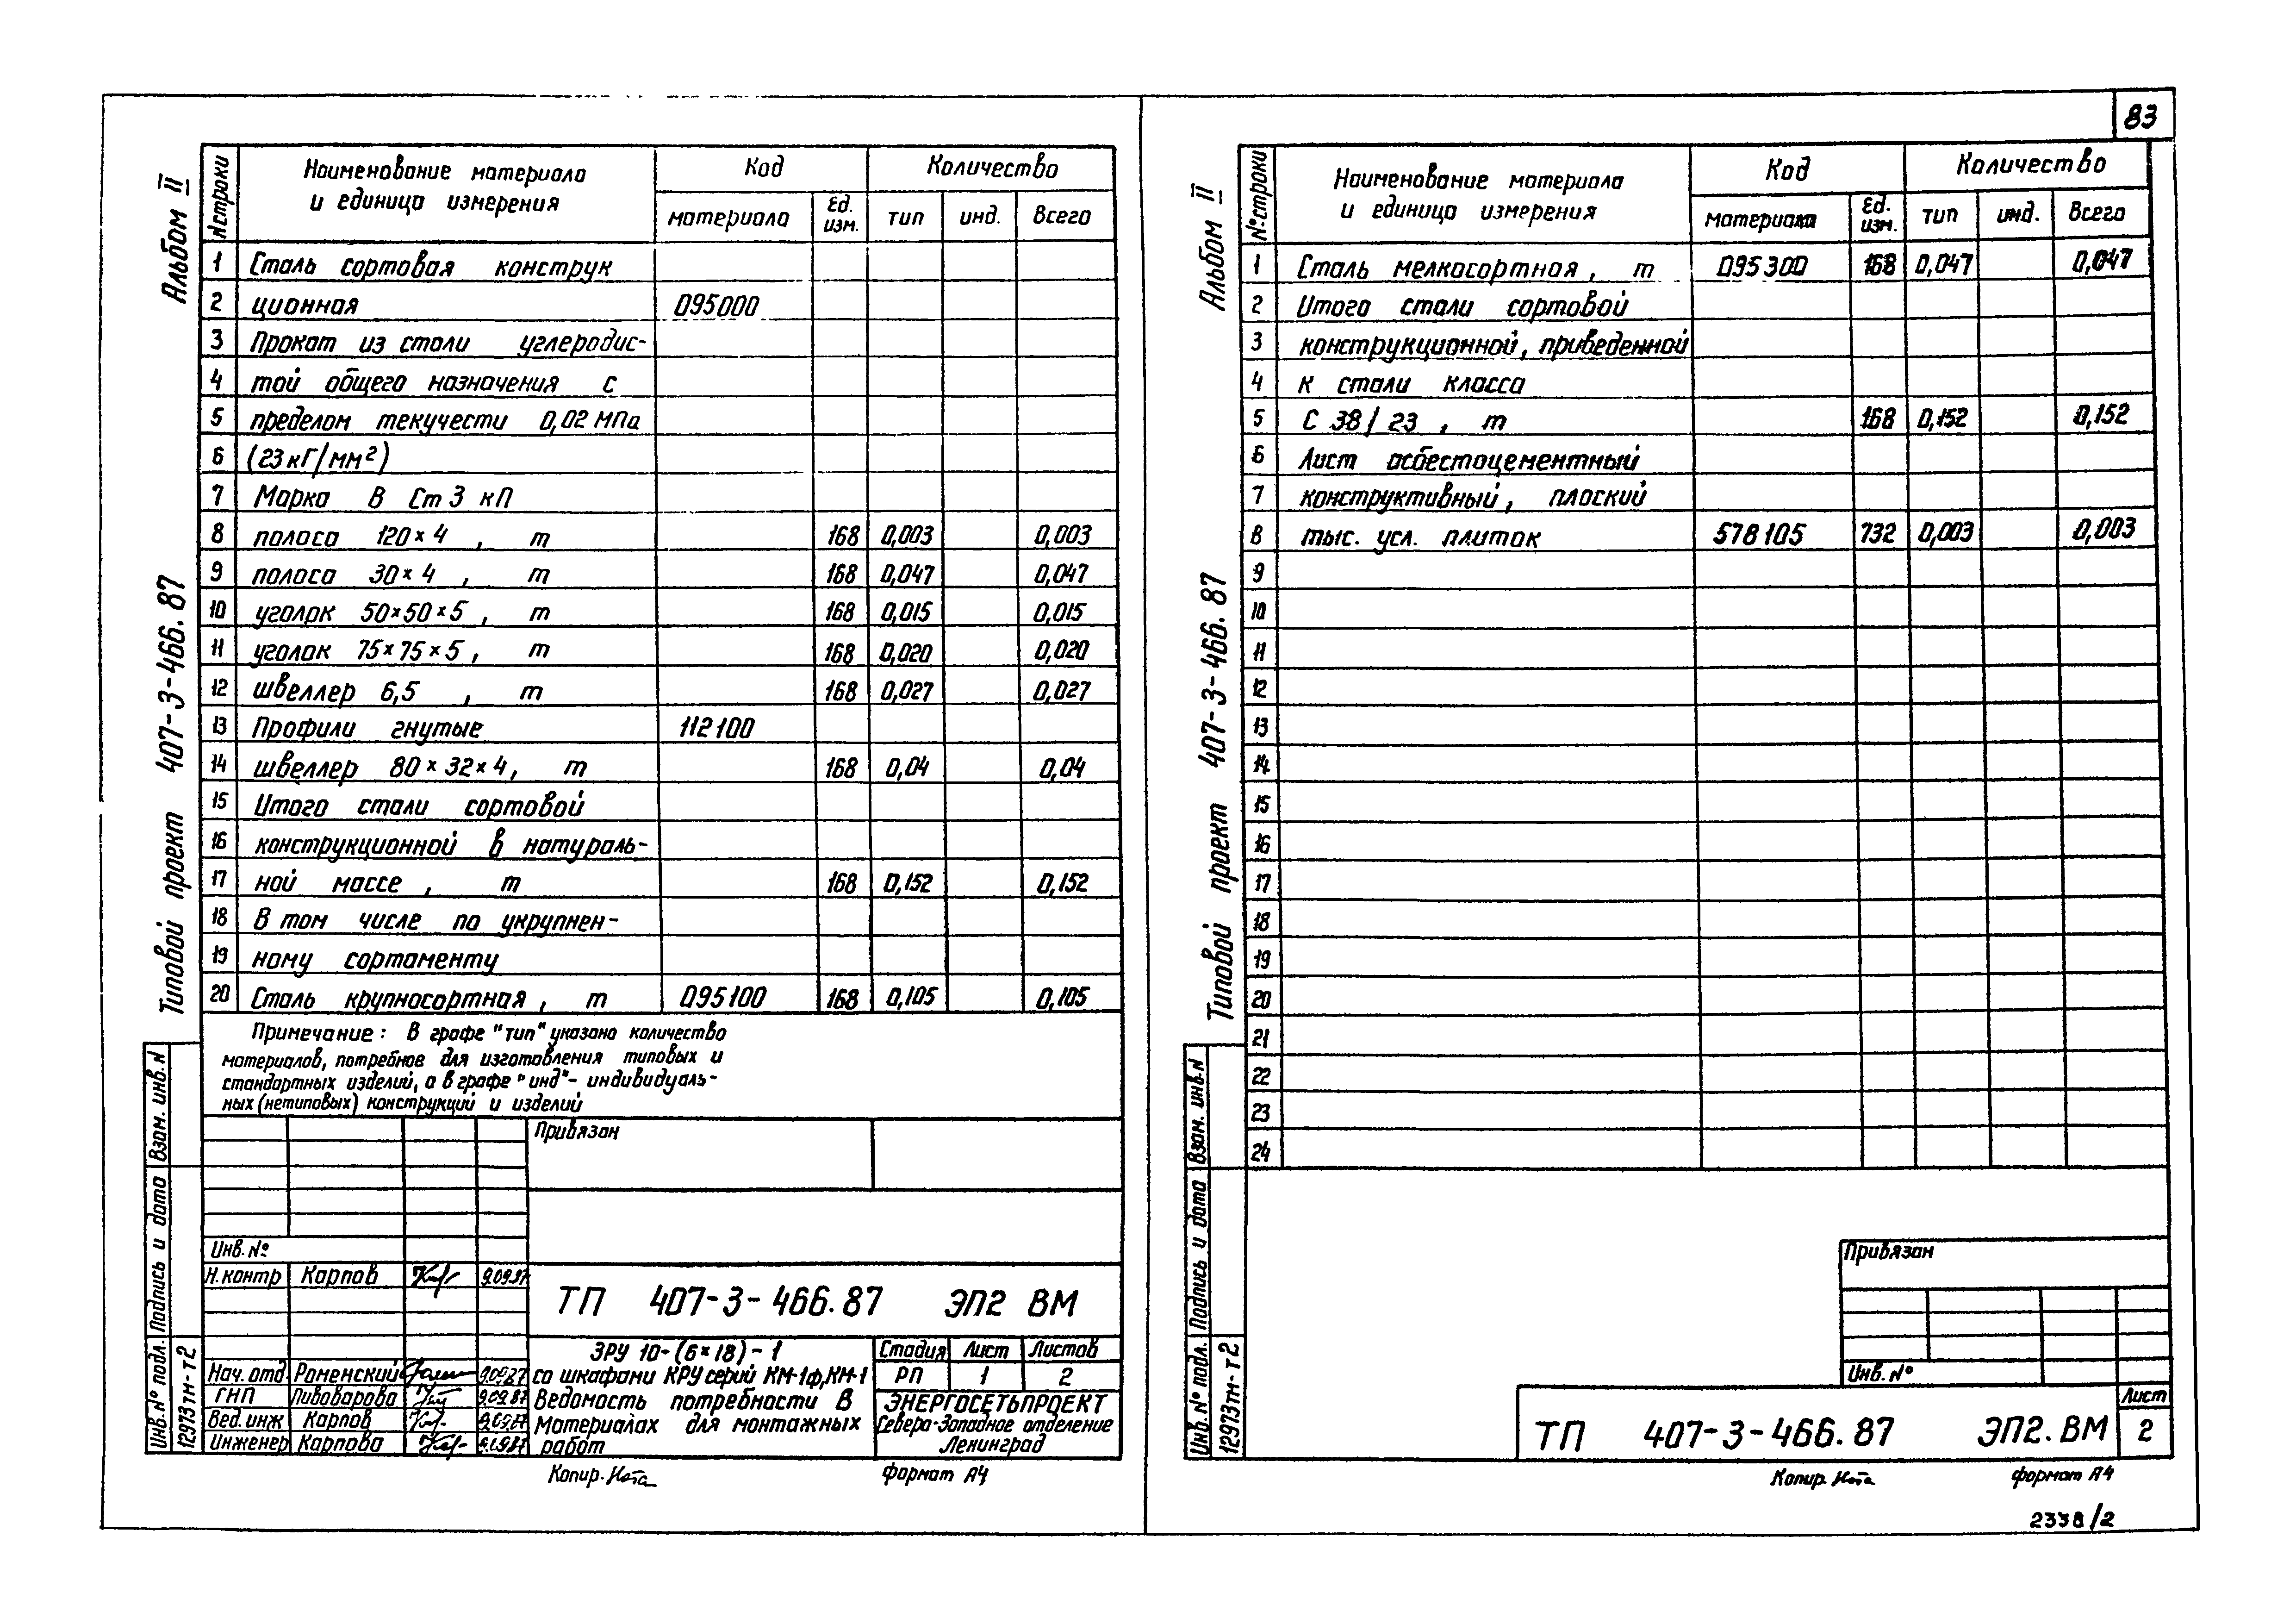 83
Альбом II
Типовой проект 407-3-466.87
№строки Наименование материала и единица измерения Код Количество
материала Ед. изм. тип инд. Всего
1 Сталь сортовая конструк
2 ционная 095000
3 Прокат из стали углеродис-
4 той общего назначения с
5 пределом текучести 0,02 МПа
6 (23 кГ/мм²)
7 Марка В Ст 3 кп
8 полоса 120×4 , т 168 0,003 0,003
9 полоса 30×4 , т 168 0,047 0,047
10 уголок 50×50×5 , т 168 0,015 0,015
11 уголок 75×75×5 , т 168 0,020 0,020
12 швеллер 6,5 , т 168 0,027 0,027
13 Профили гнутые 112100
14 швеллер 80×32×4, т 168 0,04 0,04
15 Итого стали сортовой
16 конструкционной в натураль-
17 ной массе , т 168 0,152 0,152
18 В том числе по укрупнен-
19 ному сортаменту
20 Сталь крупносортная , т 095100 168 0,105 0,105
Примечание: В графе "тип" указано количество
материалов, потребное для изготовления типовых и
стандартных изделий, а в графе "инд"- индивидуаль-
ных (нетиповых) конструкций и изделий
Привязан
Инв. №
Н.контр Карпов 9.09.87
ТП 407-3-466.87 ЭП2 ВМ
Нач. отд Роменский 9.09.87
ГНП Пивоварова 9.09.87
Вед. инж Карпов 9.09.87
Инженер Карпова 9.09.87
ЗРУ 10-(6×18)-1
со шкафами КРУ серий КМ-1ф, КМ-1
Ведомость потребности в
материалах для монтажных
работ
Стадия Лист Листов
РП 1 2
ЭНЕРГОСЕТЬПРОЕКТ
Северо-Западное отделение
Ленинград
Взам. инв. N
Подпись и дата
Инв. № подл.
12973тм-т2
Копир. формат А4
Альбом II
Типовой проект 407-3-466.87
№строки Наименование материала и единица измерения Код Количество
материала Ед. изм. тип инд. Всего
1 Сталь мелкосортная , т 095300 168 0,047 0,047
2 Итого стали сортовой
3 конструкционной, приведенной
4 к стали класса
5 С 38/23 , т 168 0,152 0,152
6 Лист асбестоцементный
7 конструктивный, плоский
8 тыс. усл. плиток 578105 732 0,003 0,003
9
10
11
12
13
14
15
16
17
18
19
20
21
22
23
24
Взам. инв. N
Подпись и дата
Инв. № подл.
12973тм-т2
Привязан
Инв. №
ТП 407-3-466.87 ЭП2.ВМ
Лист
2
Копир. формат А4
2338/2